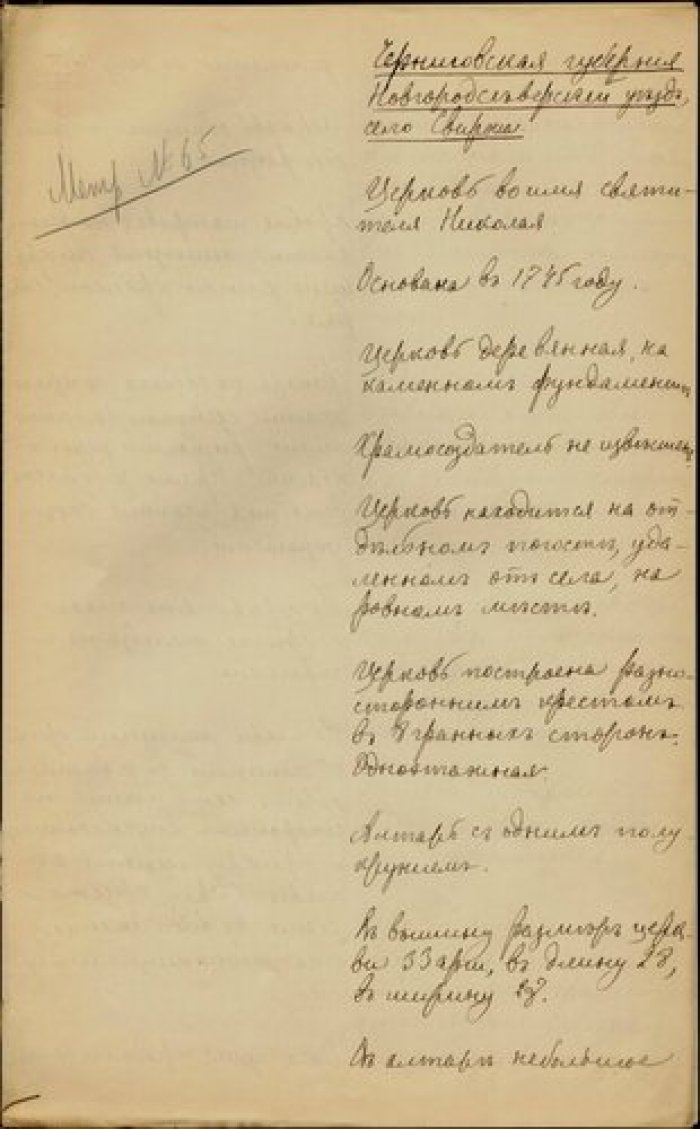 Черниговская губернія
Новгородсѣверскій уѣздъ,
село Свирки
Метр № 65
Церковь во имя святи-
теля Николая
Основана въ 1745 году.
Церковь деревянная, на
каменномъ фундаментѣ
Храмосоздатель не извѣстенъ
Церковь находится на от-
дѣльномъ погостѣ, уда-
ленномъ отъ села, на
ровномъ мѣстѣ.
Церковь построена разно-
стороннимъ крестомъ
въ 8 гранныхъ сторонъ.
Одноэтажная
Алтарь съ однимъ полу
кружіемъ.
Въ вышину размѣръ церк-
ви 33 арш, въ длину 28,
въ ширину 28.
Въ алтарѣ небольшое